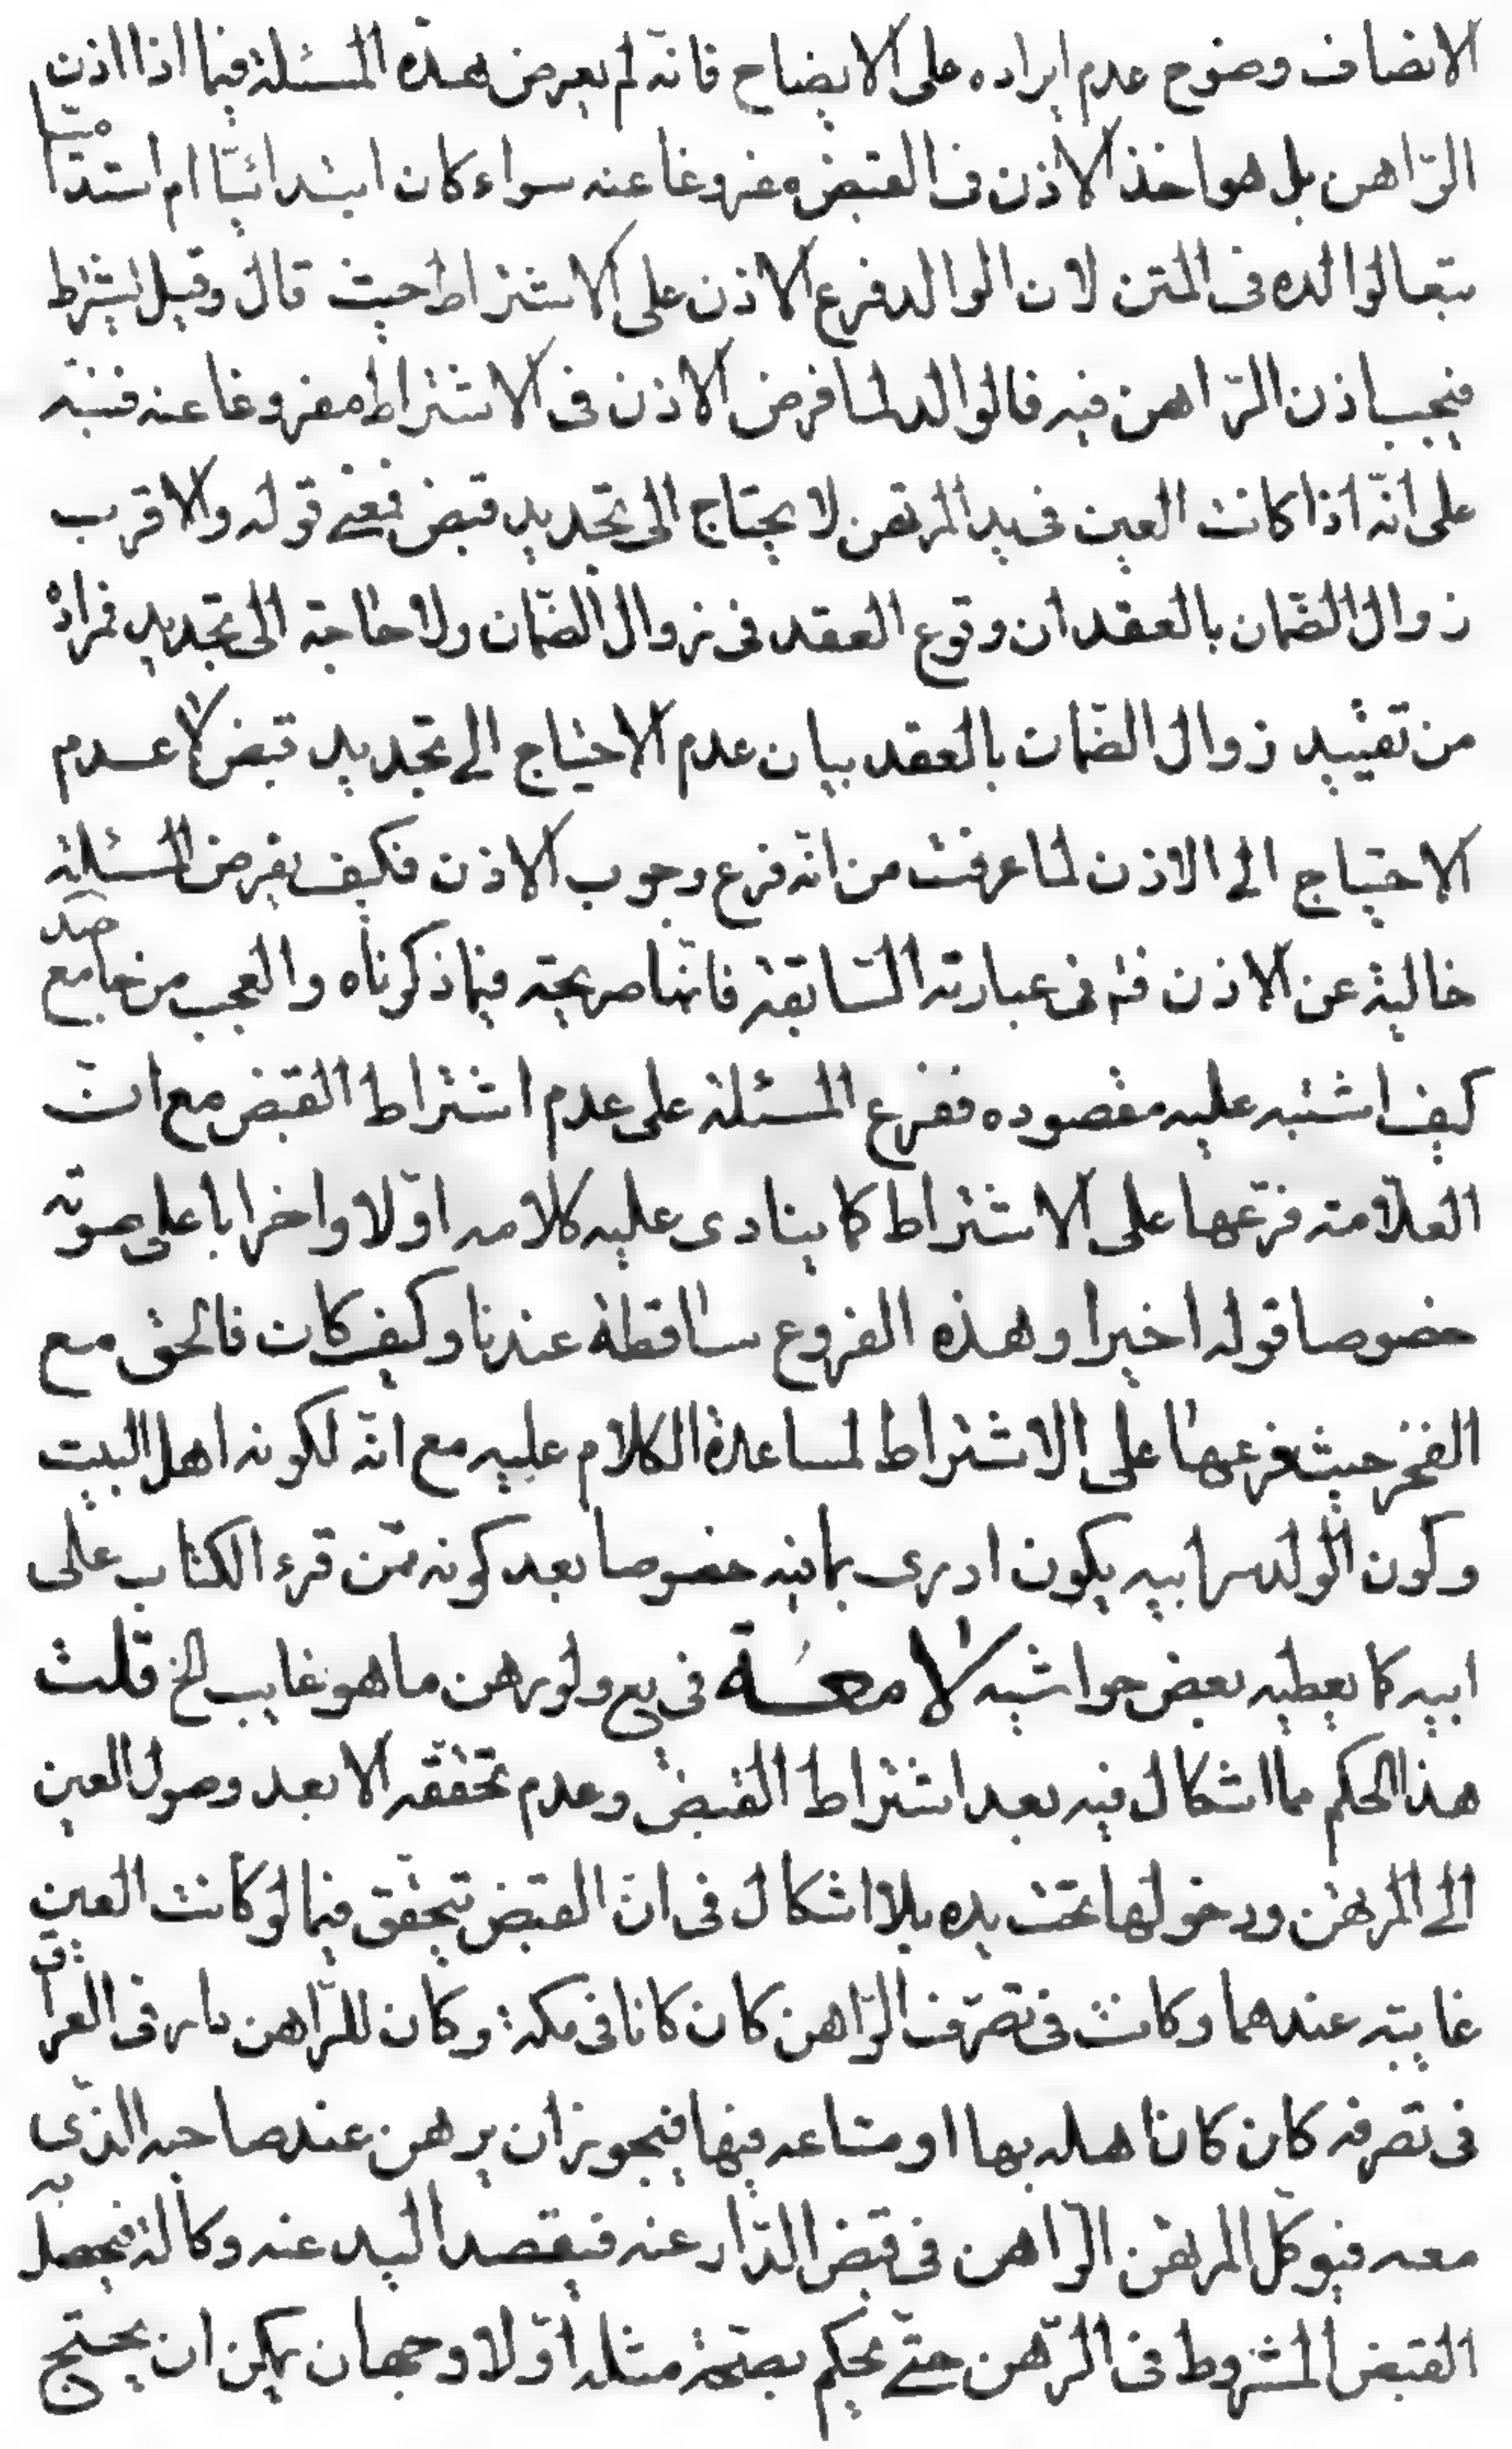 الانصاف وضوح عدم ايراده على الايضاح فانّه لم يفرض هذه المسئلة فيما اذا اذن
الرّاهن بل هو اخذ الاذن فى القبض مفروغا عنه سواء كان ابتدائيّا ام استداميّا
تبعا لوالده فى المتن لان الوالد فرع الاذن على الاشتراط حيث قال وقيل يشترط
فيجب اذن الرّاهن فيه فالوالد لما فرض الاذن فى الاشتراط مفروغا عنه فنبّه
على انّه اذا كانت العين فى يد المرتهن لا يحتاج الى تجديد قبض فمعنى قوله والاقرب
زوال الضّمان بالعقد ان وقوع العقد فى زوال الضّمان ولا حاجة الى تجديد فمراده
من تقييد زوال الضّمان بالعقد بيان عدم الاحتياج الى تجديد قبض لا عدم
الاحتياج الى الاذن لما عرفت من انّه فرع وجوب الاذن فكيف يفرض المسئلة
خالية عن الاذن فى عبارته السّابقة فانّها صريحة فيما ذكرناه والعجب من جامع صد
كيف اشتبه عليه مقصوده ففرع المسئلة على عدم اشتراط القبض مع انّ
العلاّمة فرّعها على الاشتراط كما ينادى عليه كلامه اوّلا واخرا باعلى صوته
خصوصا قوله اخيرا وهذه الفروع ساقطة عندنا وكيف كان فالحق مع
الفخر حيث فرعها على الاشتراط لمساعدة الكلام عليه مع انّه لكونه اهل البيت
وكون الولد سرابيه يكون ادرى بما فيه خصوصا بعد كونه ممّن قرء الكتاب على
ابيه كما يعطيه بعض حواشيه لامعة فى يع ولو رهن ما هو غايب الخ قلت
هذا الحكم مما اشكال فيه بعد اشتراط القبض وعدم تحققه الا بعد وصول العين
الى المرتهن ودخولها تحت يده بلا اشكال فى انّ القبض يتحقق فيما لو كانت العين
غايبة عندهما وكانت فى تصرّف الرّاهن كان كانا فى مكة وكان للرّاهن دار فى العراق
فى تصرفه كان كانا هله بها او متاعه فيها فيجوز ان يرهن عند صاحبه الذّى
معه فيوكّل المرتهن الرّاهن فى قبض الدّار عنه فيقصد اليد عنه وكالة فيحصل به
القبض المشروط فى الرّهن حتّى يحكم بصحّة مثله اوّلا وجهان يمكن ان يحتج